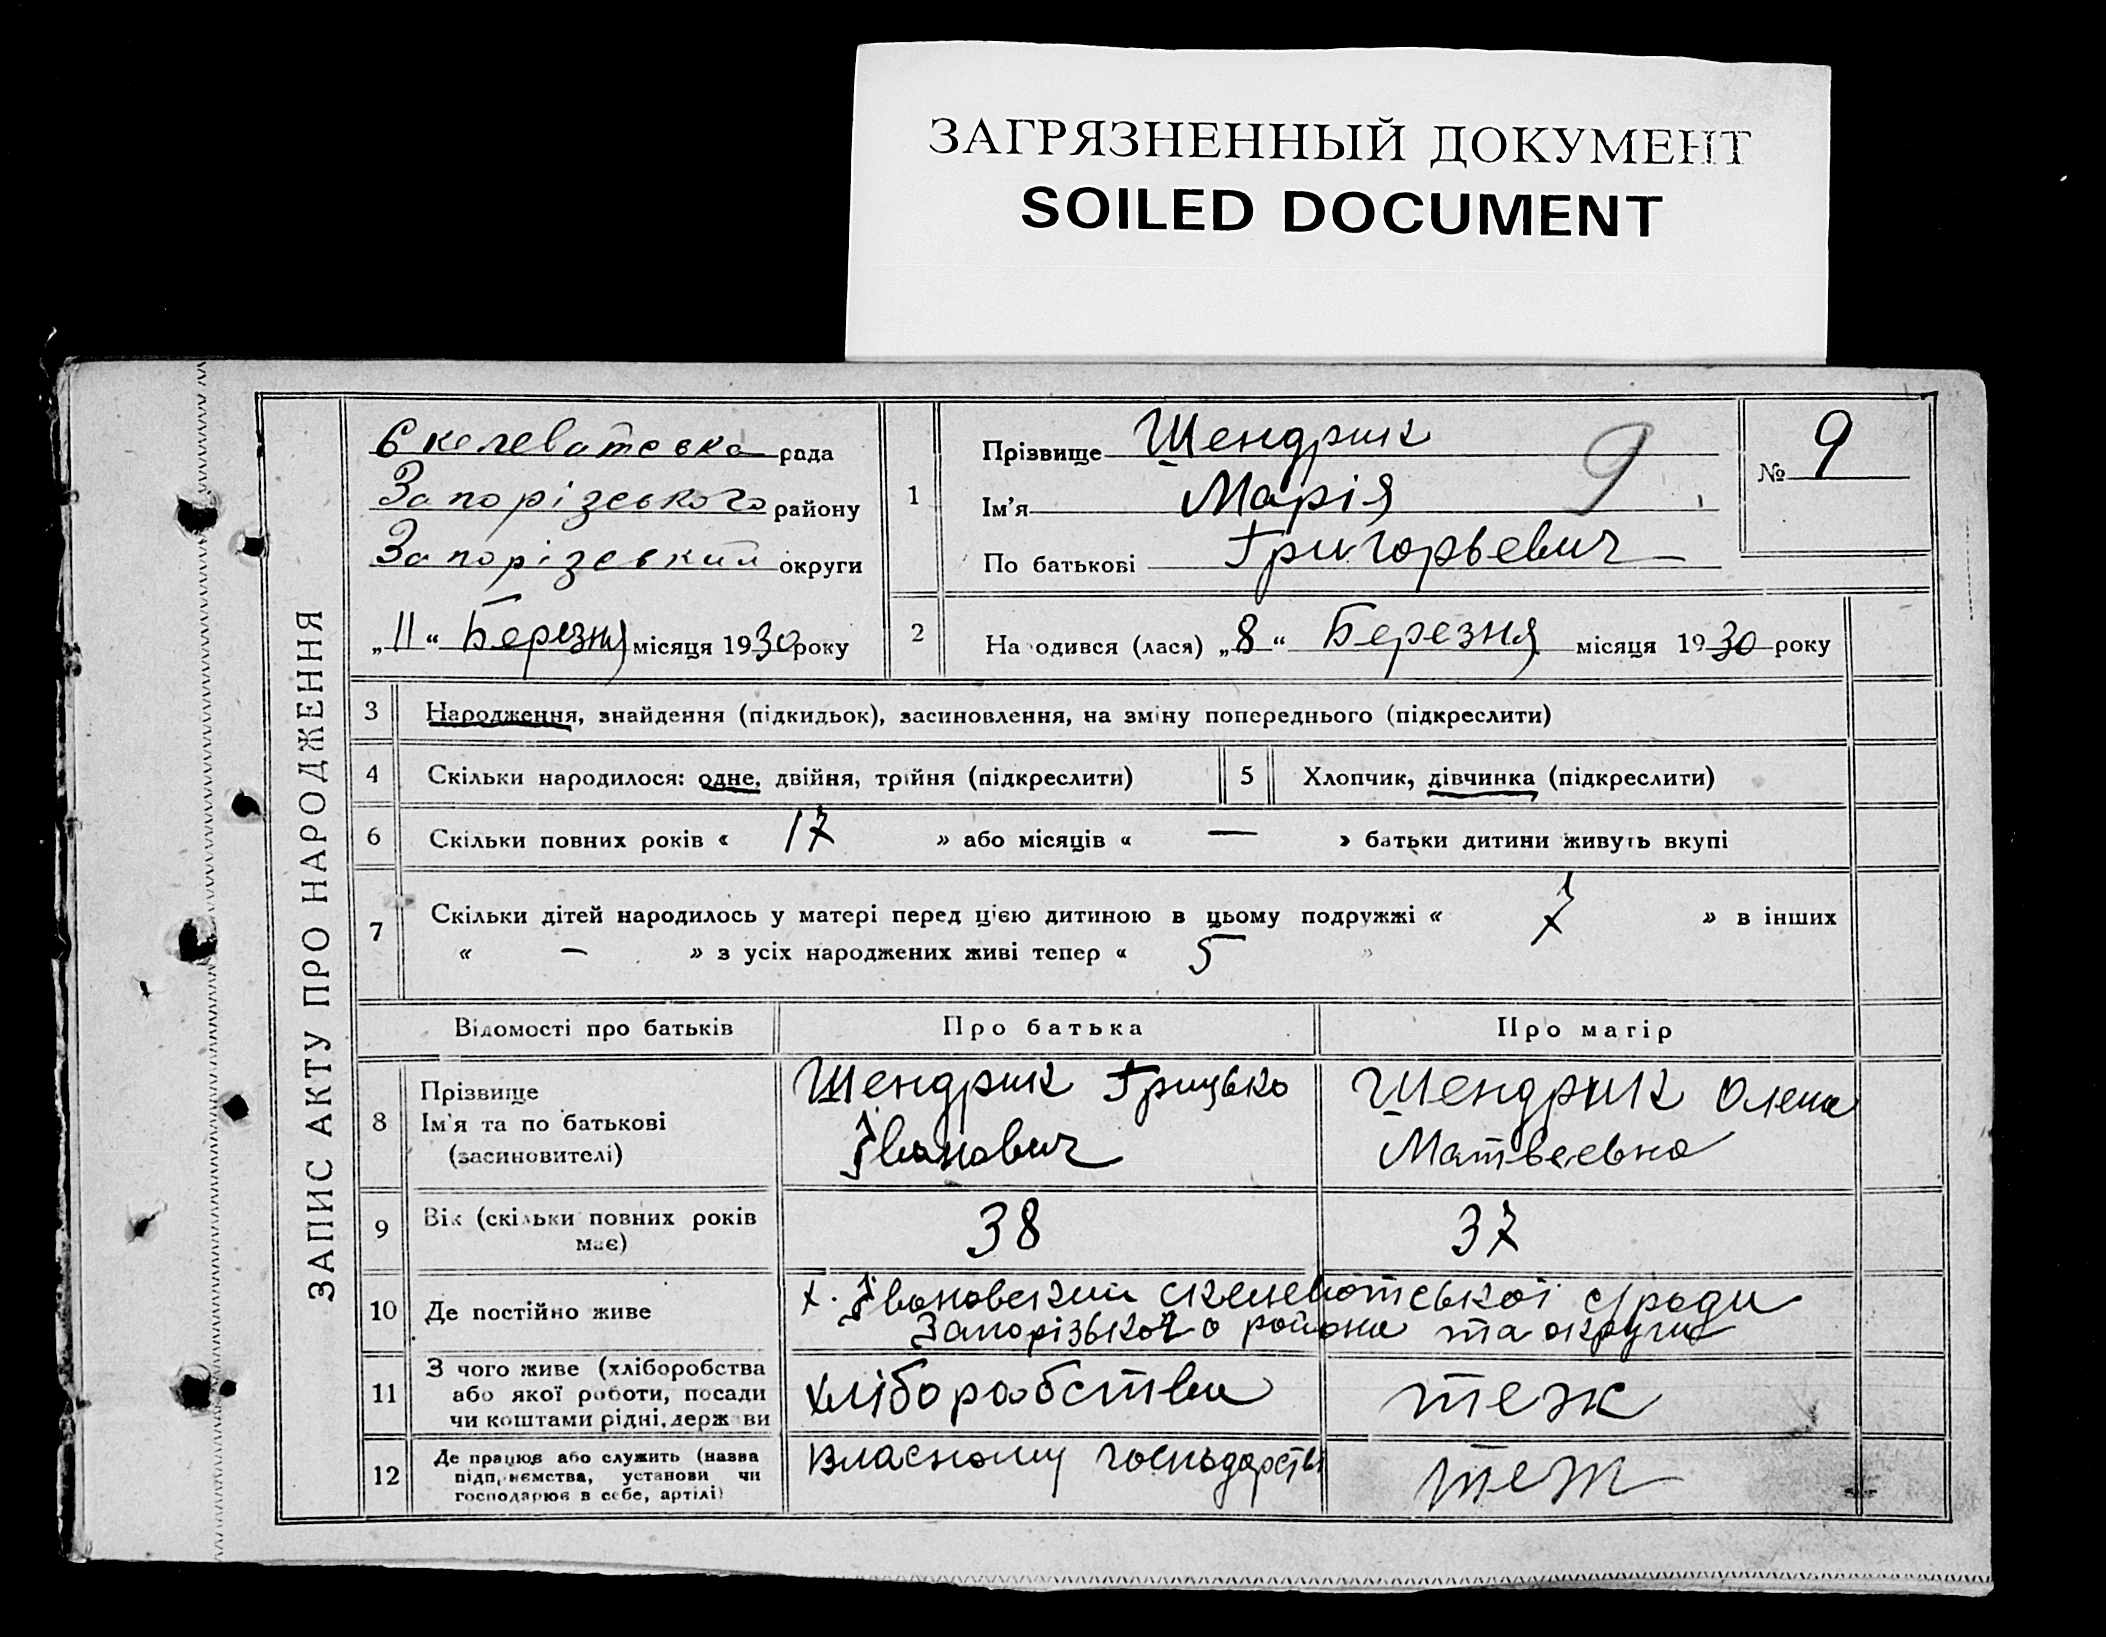 ЗАГРЯЗНЕННЫЙ ДОКУМЕНТ
SOILED DOCUMENT
ЗАПИС АКТУ ПРО НАРОДЖЕННЯ
Скелеватевка рада
Запорізського району
Запорізський округи
„11“ Березня місяця 1930 року
1
Прізвище Шендрик
Ім'я Марія
По батькові Григорьевич
9
№ 9
2 На одився (лася) „8“ Березня місяця 1930 року
3 Народження, знайдення (підкидьок), засиновлення, на зміну попереднього (підкреслити)
4 Скільки народилося: одне, двійня, трійня (підкреслити) 5 Хлопчик, дівчинка (підкреслити)
6 Скільки повних років « 17 » або місяців « — » батьки дитини живуть вкупі
7 Скільки дітей народилось у матері перед цією дитиною в цьому подружжі « 7 » в інших
« — » з усіх народжених живі тепер « 5 »
Відомості про батьків Про батька Про матір
8 Прізвище
Ім'я та по батькові
(засиновителі)
Шендрик Грицько
Іванович
Шендрик Олена
Матвеевна
9 Вік (скільки повних років
має)
38 37
10 Де постійно живе
х. Івановский скелеватської с/ради
Запорізького района та округи
11 З чого живе (хліборобства
або якої роботи, посади
чи коштами рідні, держави
хліборобства теж
12 Де працює або служить (назва
підприємства, установи чи
господарює в себе, артілі)
власному господарстві теж